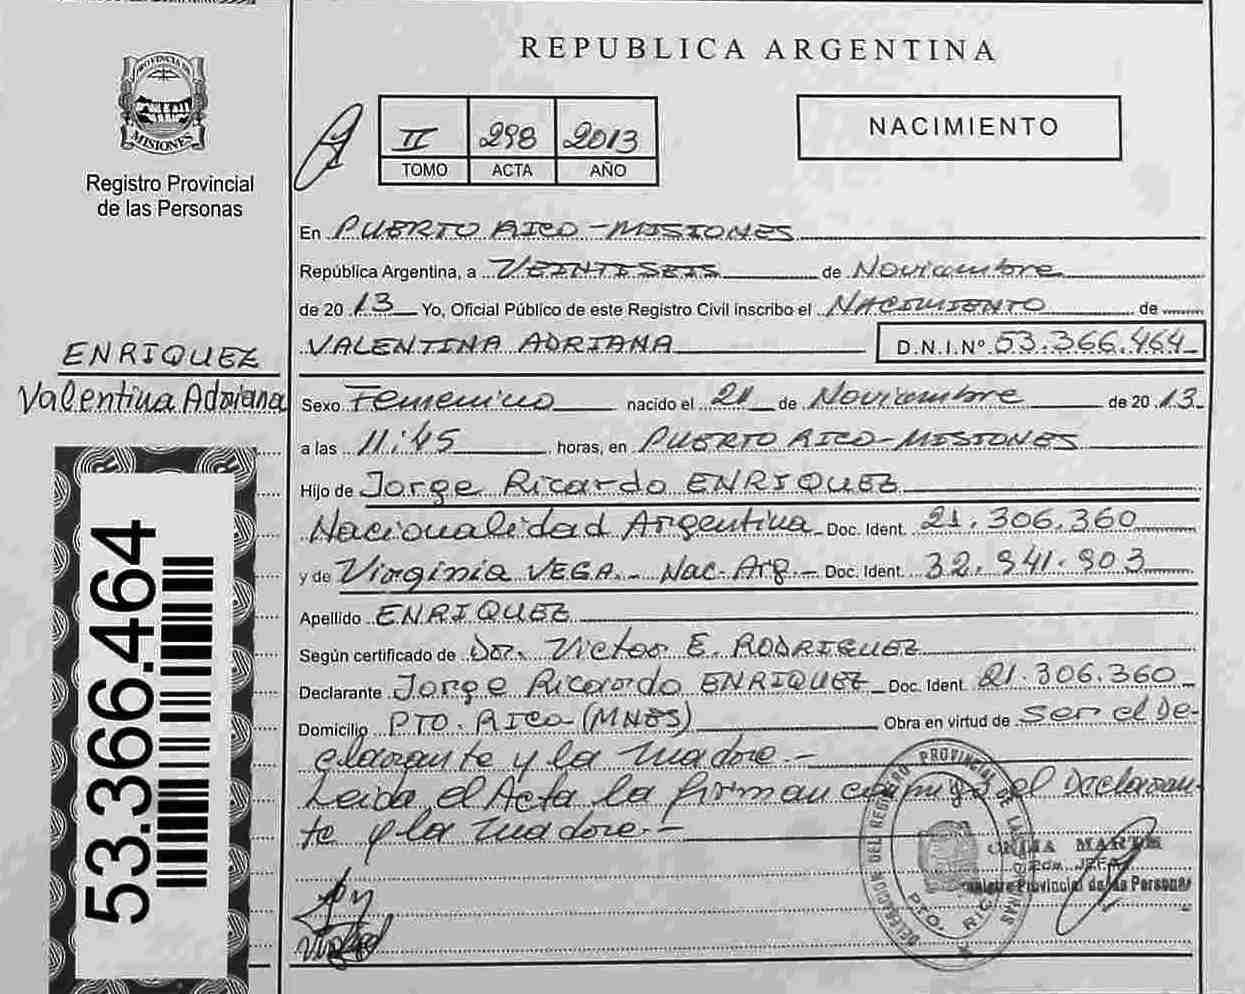 REPUBLICA ARGENTINA
PROVINCIA DE
MISIONES
Registro Provincial
de las Personas
II 298 2013
TOMO ACTA AÑO
NACIMIENTO
En PUERTO RICO - MISIONES
República Argentina, a VEINTISEIS de Noviembre
de 20 13 Yo, Oficial Público de este Registro Civil inscribo el NACIMIENTO de
VALENTINA ADRIANA D.N.I.Nº 53.366.464
ENRIQUEZ
Valentina Adriana
Sexo Femenino nacido el 21 de Noviembre de 20 13
a las 11:45 horas, en PUERTO RICO - MISIONES
Hijo de Jorge Ricardo ENRIQUEZ
Nacionalidad Argentina Doc. Ident. 21.306.360
y de Virginia VEGA.- Nac. Arg.- Doc. Ident. 32.941.903
Apellido ENRIQUEZ
Según certificado de Dr. Victor E. RODRIGUEZ
Declarante Jorge Ricardo ENRIQUEZ Doc. Ident. 21.306.360
Domicilio PTO. RICO (MNES) Obra en virtud de ser el De-
clarante y la madre.-
Leida el Acta la firman conmigo el Declaran-
te y la madre.-
53.366.464
DELEGACION DEL REGISTRO PROVINCIAL DE LAS PERSONAS
PTO. RICO
Provincial de las Personas